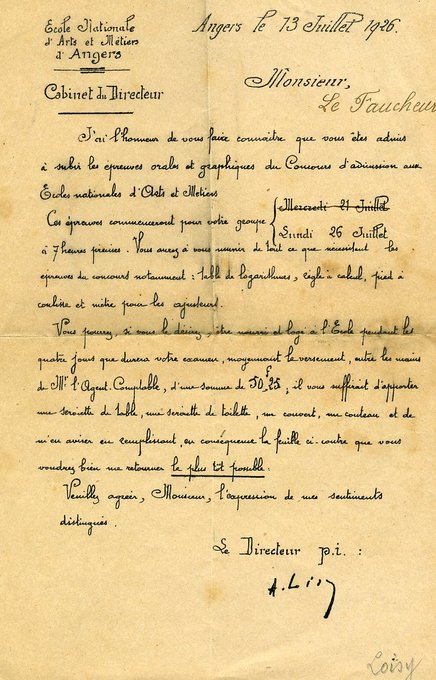 Ecole Nationale
d'Arts et Métiers
d'Angers
Cabinet du Directeur
Angers le 13 Juillet 1926.
Monsieur,
Le Faucheur
J'ai l'honneur de vous faire connaître que vous êtes admis
à subir les épreuves orales et graphiques du Concours d'admission aux
Ecoles nationales d'Arts et Métiers
Ces épreuves commenceront pour votre groupe { Mercredi 21 Juillet
Lundi 26 Juillet
à 7 heures précises. Vous aurez à vous munir de tout ce que nécessitent les
épreuves du concours notamment : table de logarithmes, règle à calcul, pied à
coulisse et mètre pour les ajusteurs.
Vous pourrez, si vous le désirez, être nourri et logé à l'Ecole pendant les
quatre jours que durera votre examen, moyennant le versement, entre les mains
de Mr. l'Agent-Comptable, d'une somme de 50F25, il vous suffirait d'apporter
une serviette de table, une serviette de toilette, un couvert, un couteau et de
m'en aviser en remplissant, en conséquence la feuille ci-contre que vous
voudrez bien me retourner le plus tôt possible.
Veuillez agréer, Monsieur, l'expression de mes sentiments
distingués.
Le Directeur p.i. :
Loisy